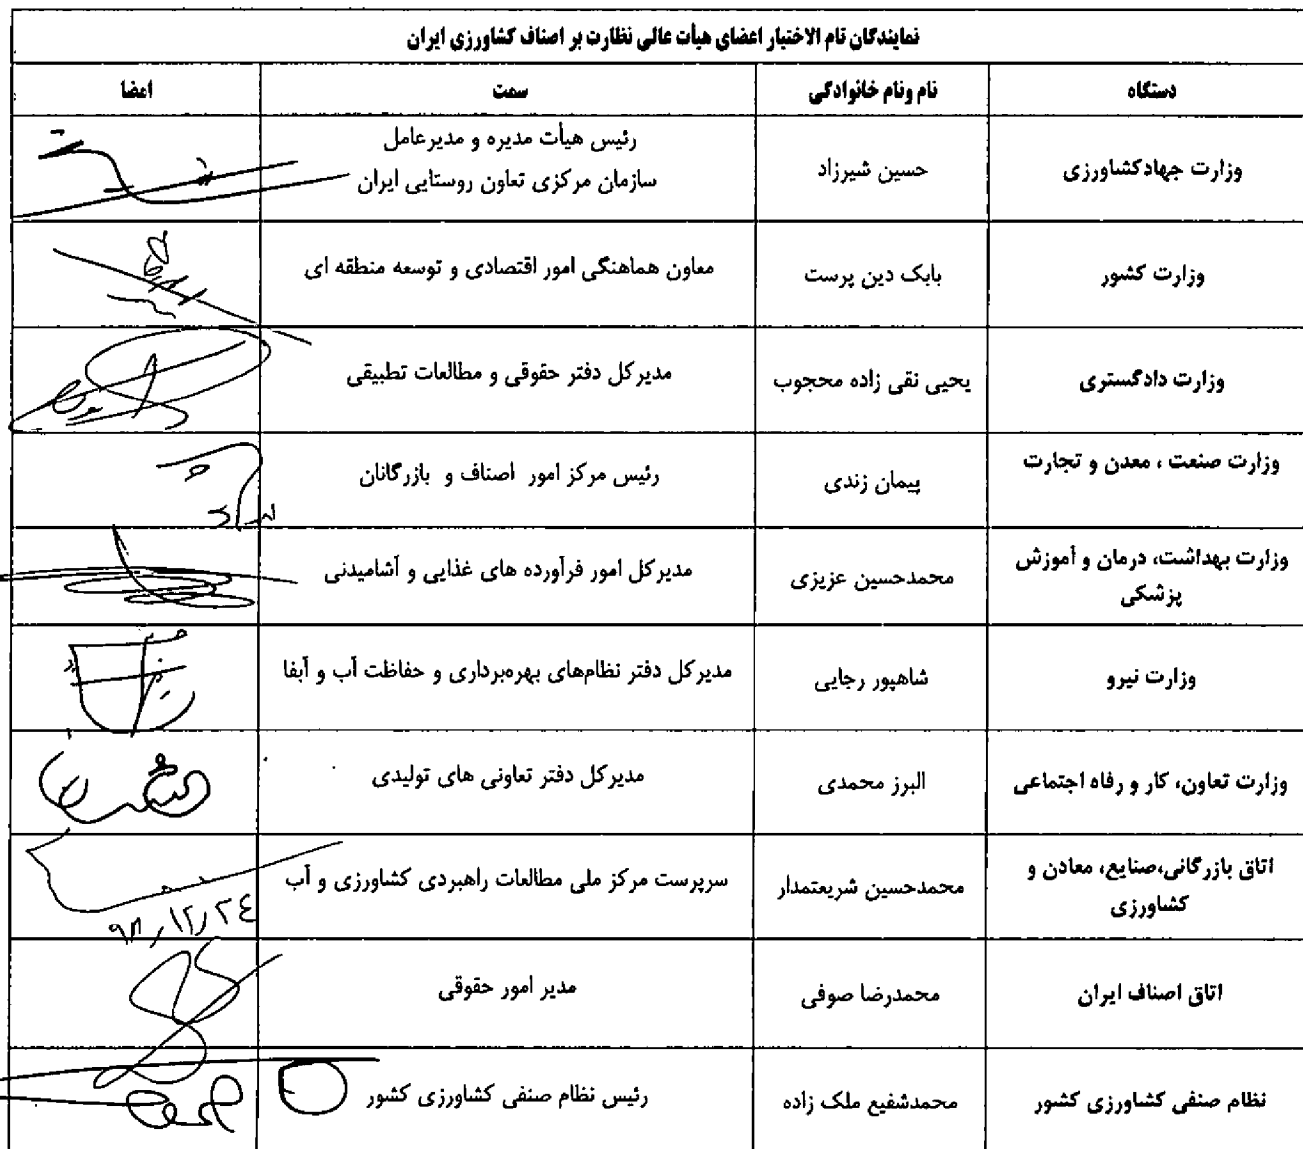 نمایندگان تام الاختیار اعضای هیأت عالی نظارت بر اصناف کشاورزی ایران
دستگاه نام ونام خانوادگی سمت امضا
وزارت جهادکشاورزی حسین شیرزاد رئیس هیأت مدیره و مدیرعامل
سازمان مرکزی تعاون روستایی ایران
وزارت کشور بابک دین پرست معاون هماهنگی امور اقتصادی و توسعه منطقه ای
وزارت دادگستری یحیی نقی زاده محجوب مدیرکل دفتر حقوقی و مطالعات تطبیقی
وزارت صنعت ، معدن و تجارت پیمان زندی رئیس مرکز امور اصناف و بازرگانان
وزارت بهداشت، درمان و آموزش
پزشکی محمدحسین عزیزی مدیرکل امور فرآورده های غذایی و آشامیدنی
وزارت نیرو شاهپور رجایی مدیرکل دفتر نظام‌های بهره‌برداری و حفاظت آب و آبفا
وزارت تعاون، کار و رفاه اجتماعی البرز محمدی مدیرکل دفتر تعاونی های تولیدی
اتاق بازرگانی،صنایع، معادن و
کشاورزی محمدحسین شریعتمدار سرپرست مرکز ملی مطالعات راهبردی کشاورزی و آب
۹۸/۱۲/۲٤
اتاق اصناف ایران محمدرضا صوفی مدیر امور حقوقی
نظام صنفی کشاورزی کشور محمدشفیع ملک زاده رئیس نظام صنفی کشاورزی کشور